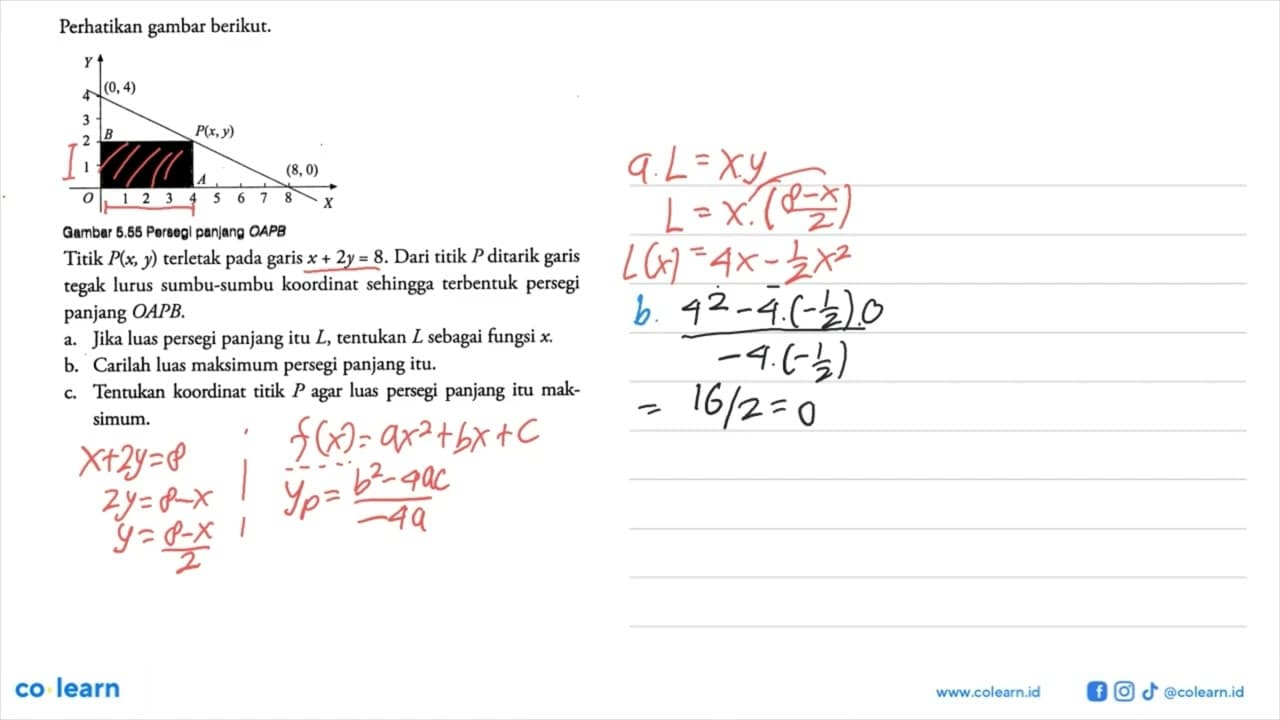 Perhatikan gambar berikut.
Y
(0, 4)
4
3
2 B P(x, y)
1 A (8, 0)
O 1 2 3 4 5 6 7 8 X
Gambar 5.55 Persegi panjang OAPB
Titik P(x, y) terletak pada garis x + 2y = 8. Dari titik P ditarik garis
tegak lurus sumbu-sumbu koordinat sehingga terbentuk persegi
panjang OAPB.
a. Jika luas persegi panjang itu L, tentukan L sebagai fungsi x.
b. Carilah luas maksimum persegi panjang itu.
c. Tentukan koordinat titik P agar luas persegi panjang itu mak-
simum.
x+2y=8
2y=8-x
y=8-x/2
f(x)=ax²+bx+c
yp=b²-4ac/-4a
a. L=x.y
L=x.(8-x/2)
L(x)=4x-1/2x²
b. 4²-4.(-1/2).0
-4.(-1/2)
= 16/2=0
co learn
www.colearn.id
@colearn.id